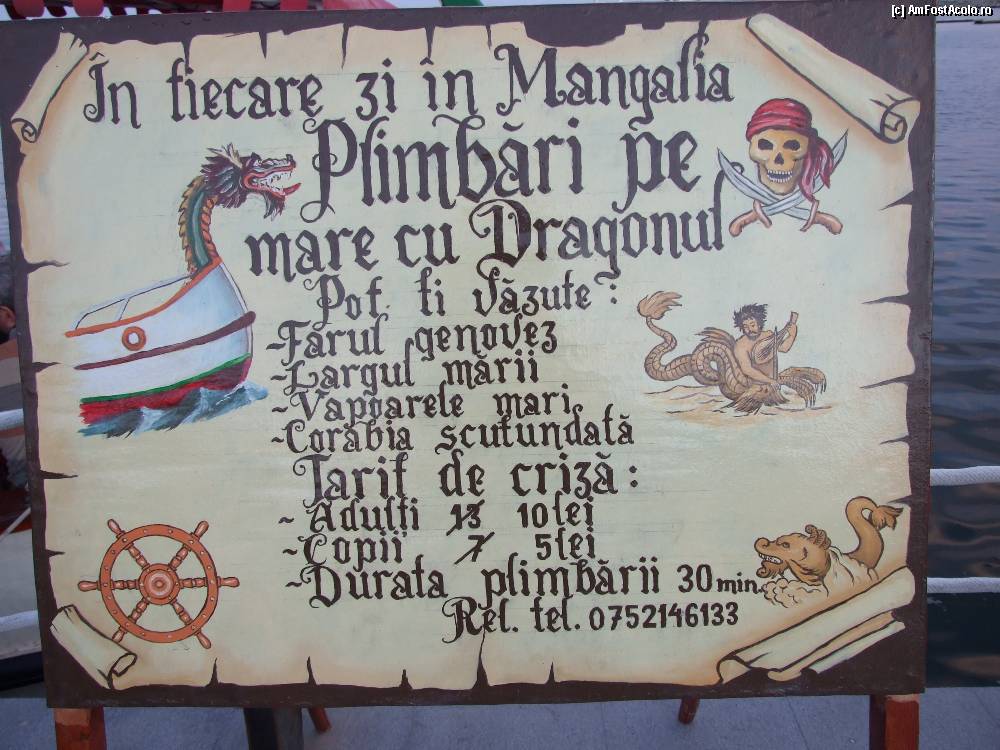 [c] AmFostAcolo.ro
În fiecare zi în Mangalia
Plimbări pe
mare cu Dragonul
Pot fi văzute:
-Farul genovez
-Largul mării
-Vapparele mari
-Corabia scufundată
Tarif de criză:
-Adulți 13 10 lei
-Copii 7 5 lei
-Durata plimbării 30 min.
Rel. tel. 0752146133